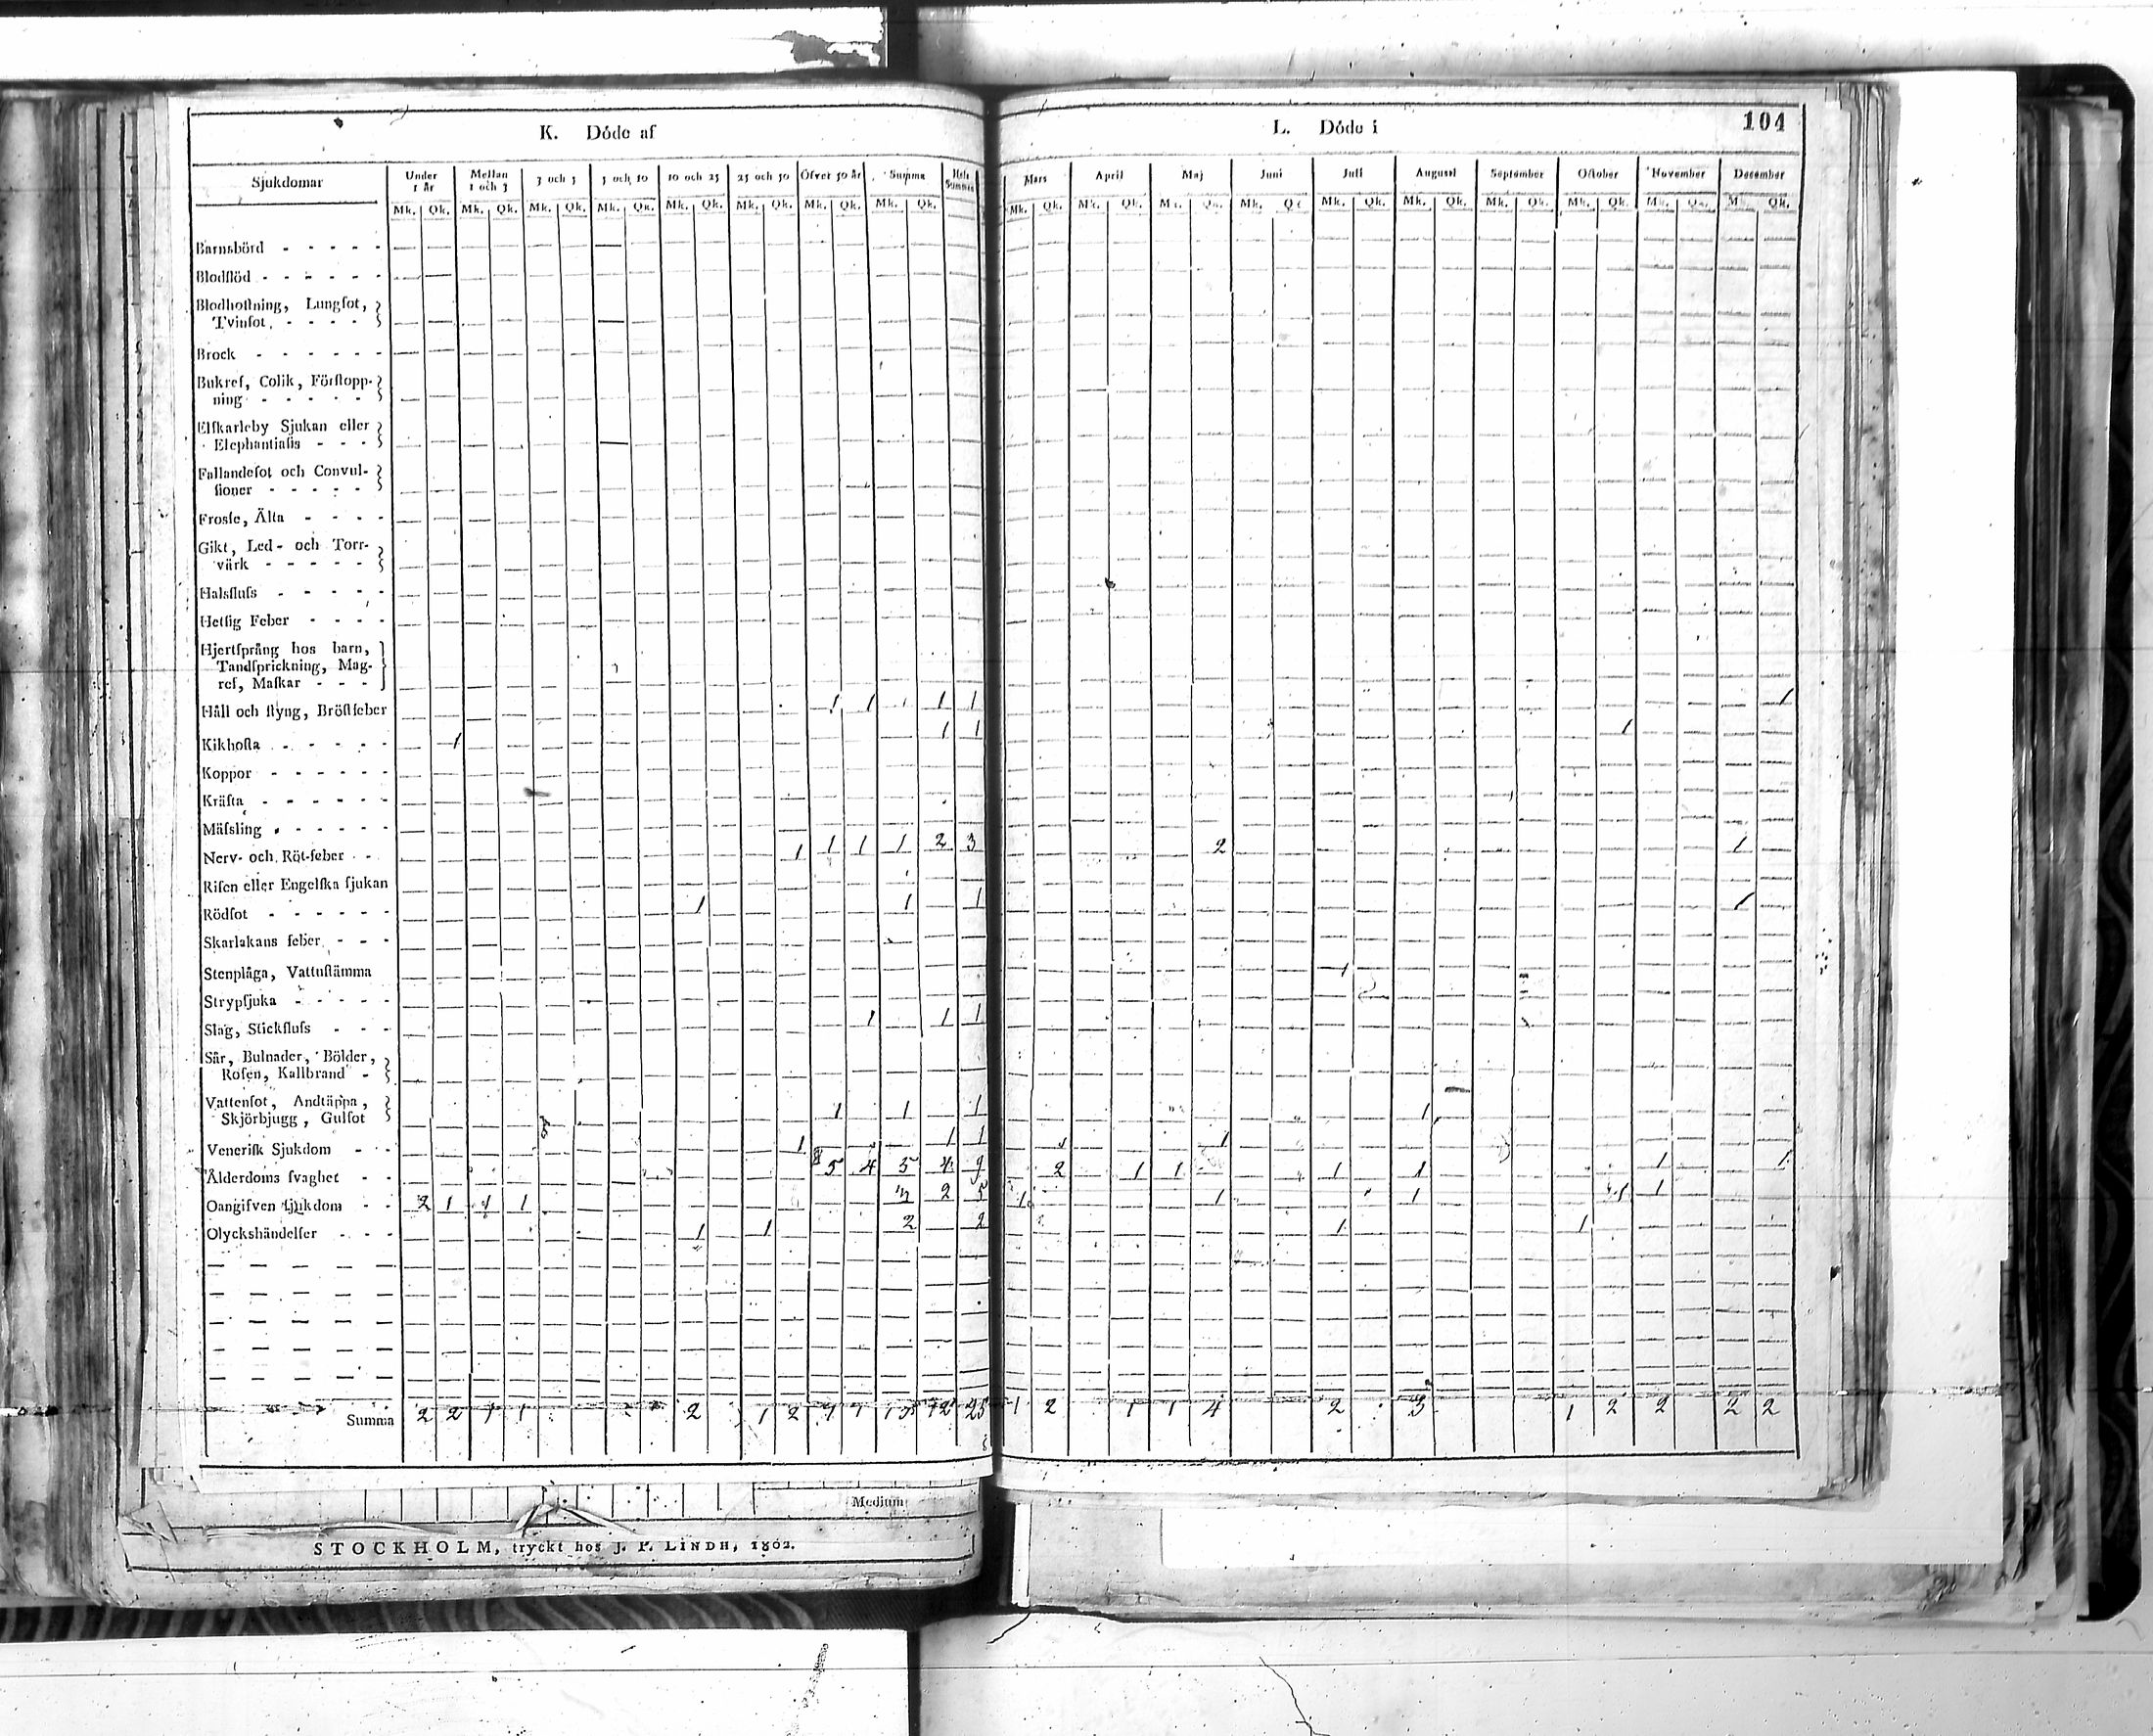 K. Döde af
L. Döde i
104
Sjukdomar Under 1 år Mellan 1 och 3 3 och 5 5 och 10 10 och 25 25 och 50 Öfver 50 år Summa Hela Summan Mars April Maj Juni Juli Augusti September October November December
Mk. Qk. Mk. Qk. Mk. Qk. Mk. Qk. Mk. Qk. Mk. Qk. Mk. Qk. Mk. Qk. Mk. Qk. Mk. Qk. Mk. Qk. Mk. Qk. Mk. Qk. Mk. Qk. Mk. Qk. Mk. Qk. Mk. Qk. Mk. Qk.
Barnsbörd - - - - -
Blodflöd - - - - - -
Blodhoſtning, Lungſot,
Tvinſot. - - - -
Brock - - - - - -
Bukref, Colik, Förſtopp-
ning - - - - -
Elſkarleby Sjukan eller
Elephantiaſis - - -
Fallandeſot och Convul-
ſioner - - - - -
Frosſe, Älta - - - -
Gikt, Led- och Torr-
värk - - - - -
Halsfluſs - - - - -
Hetſig Feber - - - -
Hjertſprång hos barn,
Tandſprickning, Mag-
ref, Maſkar - - -
Håll och ſtyng, Bröſtfeber 1 1 1 1 1
Kikhoſta - - - - - 1 1 1 1
Koppor - - - - - -
Kräfta - - - - - -
Mäſsling - - - - -
Nerv- och Röt-feber - - 1 1 1 1 2 3 2 1
Riſen eller Engelſka ſjukan
Rödſot - - - - - - 1 1 1 1
Skarlakans feber - - -
Stenplåga, Vattuſtämma 1
Strypſjuka - - - - -
Slag, Stickfluſs - - - 1 1 1
Sår, Bulnader, Bölder,
Roſen, Kallbrand -
Vattenſot, Andtäppa,
Skjörbjugg, Gulſot 1 1 1 1
Veneriſk Sjukdom - - 1 1 1 1 1
Ålderdoms ſvaghet - - 5 4 5 4 9 2 1 1 1 1 1 1
Oangifven ſjukdom - - 2 1 1 1 3 2 5 1 1 1 1 1
Olyckshändelſer - - - 1 1 2 2 1 1
Summa 2 2 1 1 2 1 2 7 7 13 12 25 1 2 1 1 4 2 3 1 2 2 2 2
Medium
STOCKHOLM, tryckt hos J. P. LINDH, 1802.